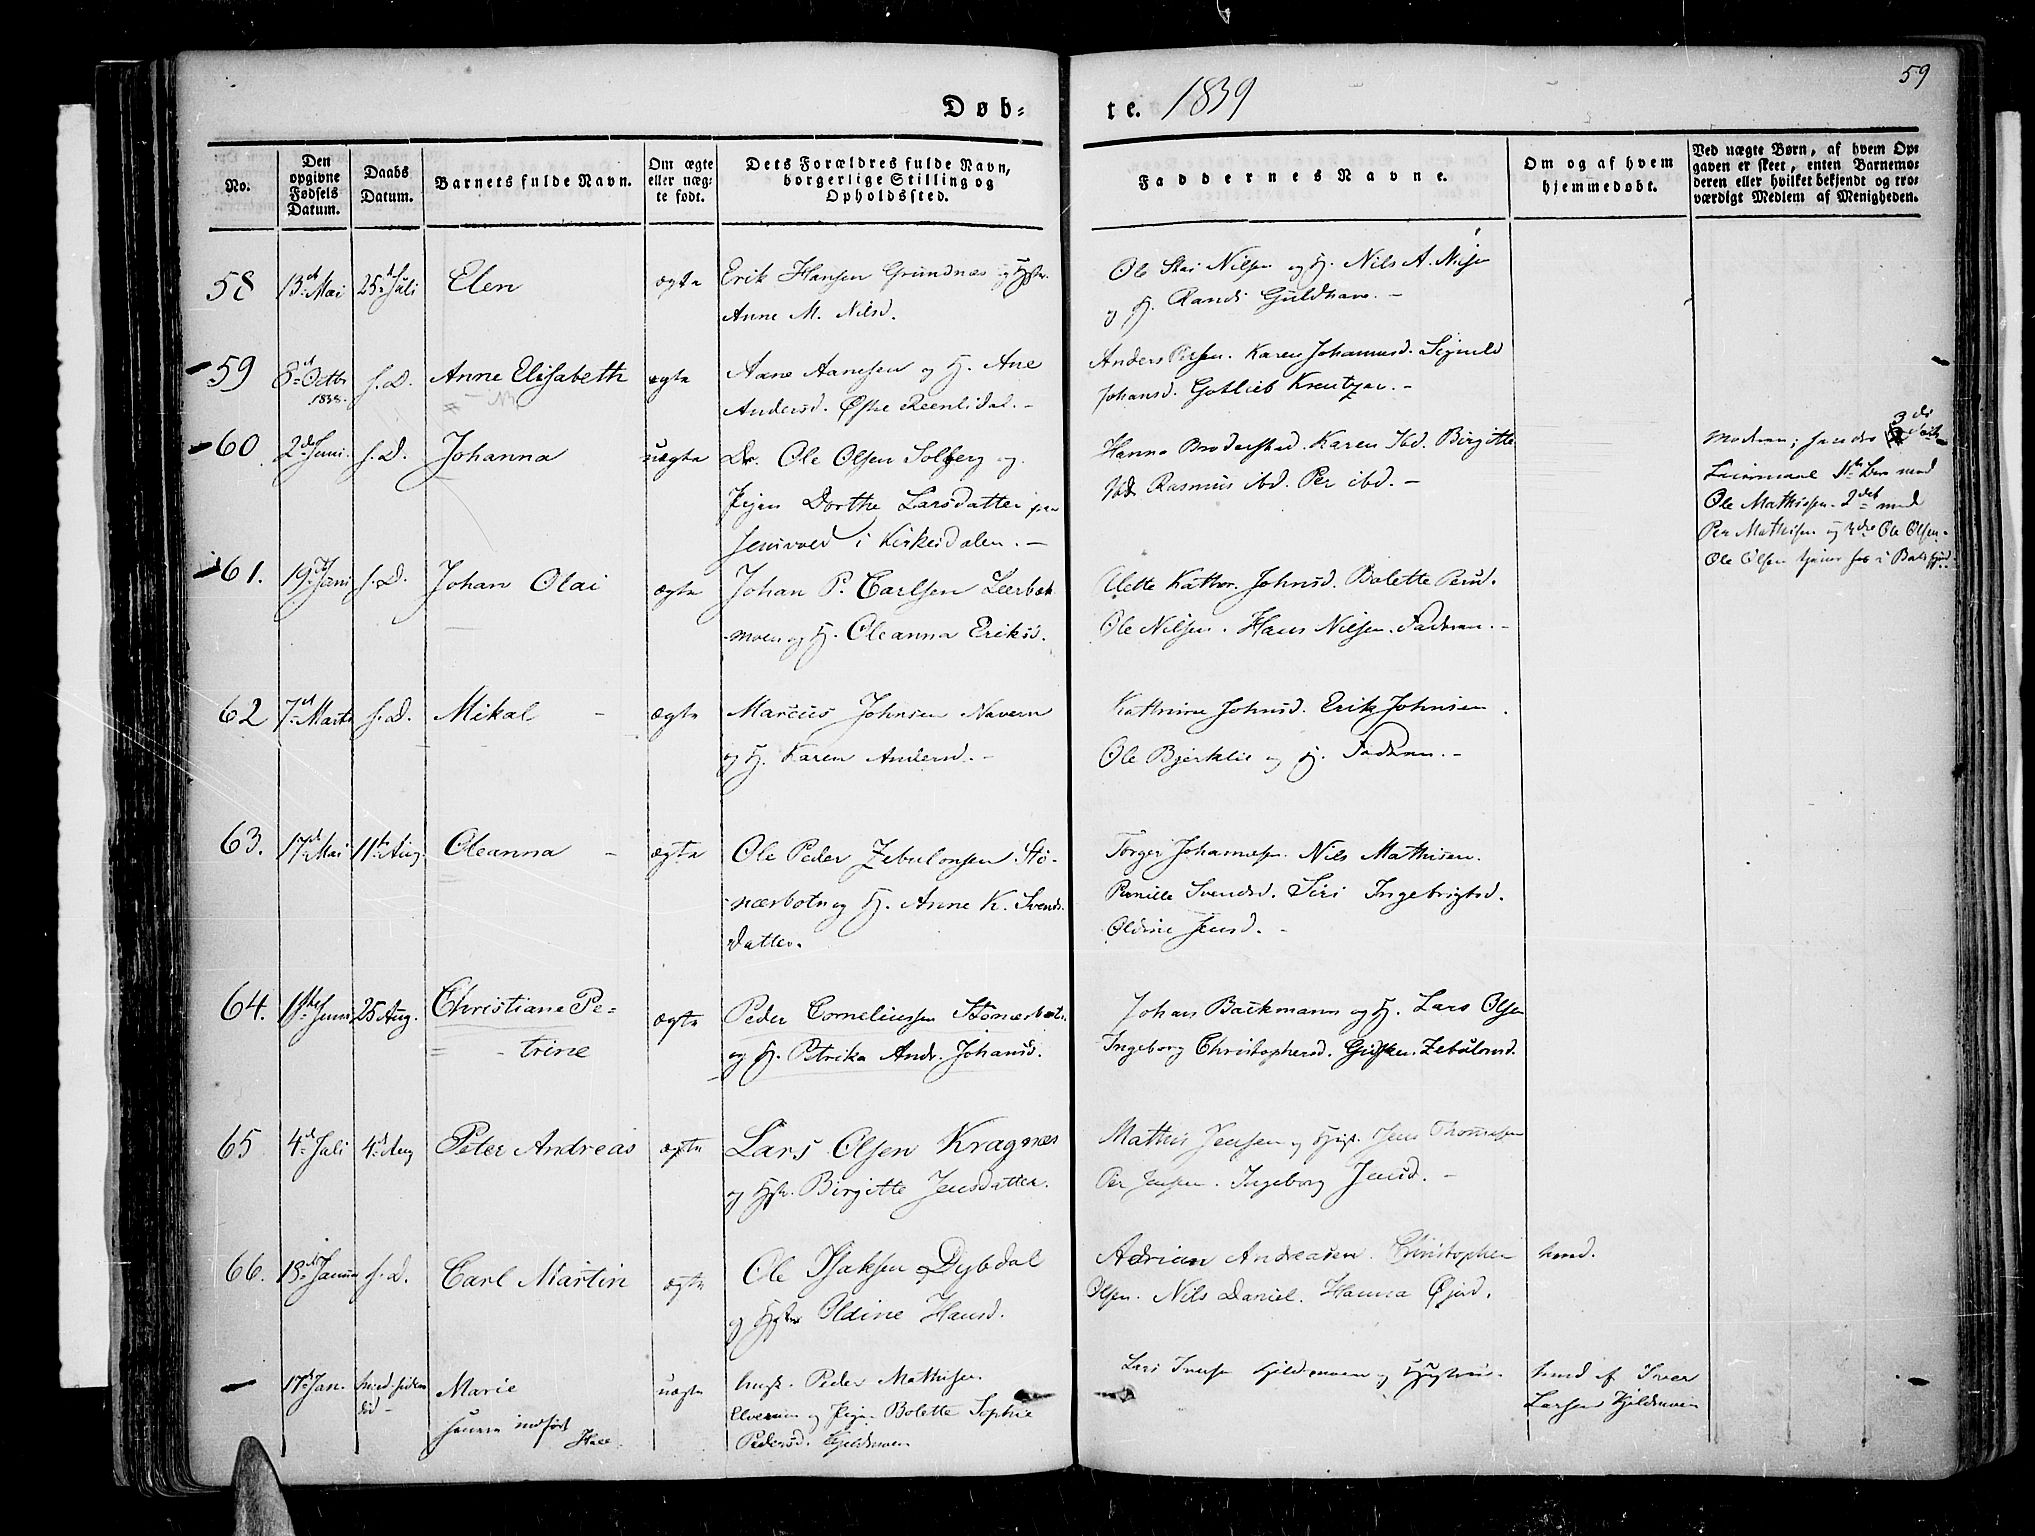 59
Døb=
te. 1839
No.
Den opgivne Fødsels Datum.
Daabs Datum.
Barnets fulde Navn.
Om ægte eller uæg- te født.
Dets Forældres fulde Navn, borgerlige Stilling og Opholdssted.
Faddernes Navne.
Om og af hvem hjemmedøbt.
Ved uægte Børn, af hvem Op- gaven er skeet, enten Barnemo- deren eller hvilket bekjendt og tro- værdigt Medlem af Menigheden.
58 13 Mai 25 Juli Elen ægte Erik Hansen Grundnæs og Hstr.
Anne M. Nilsd.
Ole Nilsen og H. Nils A.
og H. Randi Guldhav. -
59 8 Octbr 1838. s. D. Anne Elisabeth ægte Aane Aanesen og H. Ane
Andersd. Øfre
Anders Persen. Karen Johannesd.
Johansd. Gotlieb Kreutzer. -
60 2 Juni. s. D. Johanna uægte Dr. Ole Olsen Solberg og
Pigen Dorthe Larsdatter paa
i Kirkesdalen. -
Hanna Broderstad. Karen Ibd. Birgitte
Ibd. Rasmus ibd. Per ibd. -
Moderen; hendes 3de
Leiermaal 1te Barn med
Ole Mathisen. 2det med
Per Mathisen og 3die Ole Olsen.
Ole Olsen tjener hos i
61. 19 Juni s. D. Johan Olai ægte Johan P. Carlsen Leerbek
moen og H. Oleanna Eriksd.
Alette Kathr. Johnsd. Bolette Persd.
Ole Nilsen. Hans Nilsen. Faderen. -
62 7 Marts s. D. Mikal - ægte Marcus Johnsen Navern
og H. Karen Andersd. -
Kathrine Johnsd. Erik Johnsen
Ole Bjerklie og H. Faderen. -
63. 17 Mai 11 Aug. Oleanna - ægte Ole Peder Zebulonsen Stø-
nærbotn og H. Anne K. Svends
datter.
Torger Johannesen. Nils Mathisen.
Pernille Svendsd. Siri Ingebrigtsd.
Oldine Jensd. -
64. Juni 25 Aug. Christiane Pe=
trine
ægte Peder Corneliussen Stønærbotn
og H. Petrika Andr. Johansd.
Johan Backmann og H. Lars Olsen
Ingeborg Christophersd. Zebulonsd.
65 4 Juli 4 Aug Peter Andreas ægte Lars Olsen Kragnæs
og Hstr. Birgitte Jensdatter.
Mathis Jensen og Hust. Jens Thomesen
Per Jensen. Ingeborg Jensd. -
66. 18 Januar s. D. Carl Martin ægte Ole Isaksen Dybdal
og Hstr Oldine Hansd.
Adrian Andreasen. Christopher
Olsen. Nils Daniel. Hanna Øjord.
hmd.
- 17 Jan. hmd. siden
død -
Marie
indført
uægte
Peder Mathisen
Elvevun og Pigen Bolette Sophie
Pedersd. Kjeldmoen
Lars Iversen Kjeldmoen og Hustrue.
hmd af Iver
Larsen Kjeldmoen